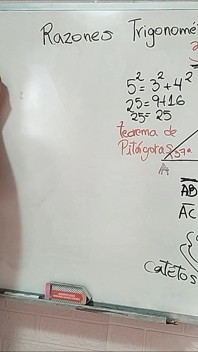 Razones Trigonomé
5² = 3² + 4²
25 = 9+16
25 = 25
teorema de
Pitágoras
37°
A
AB
AC
catetos